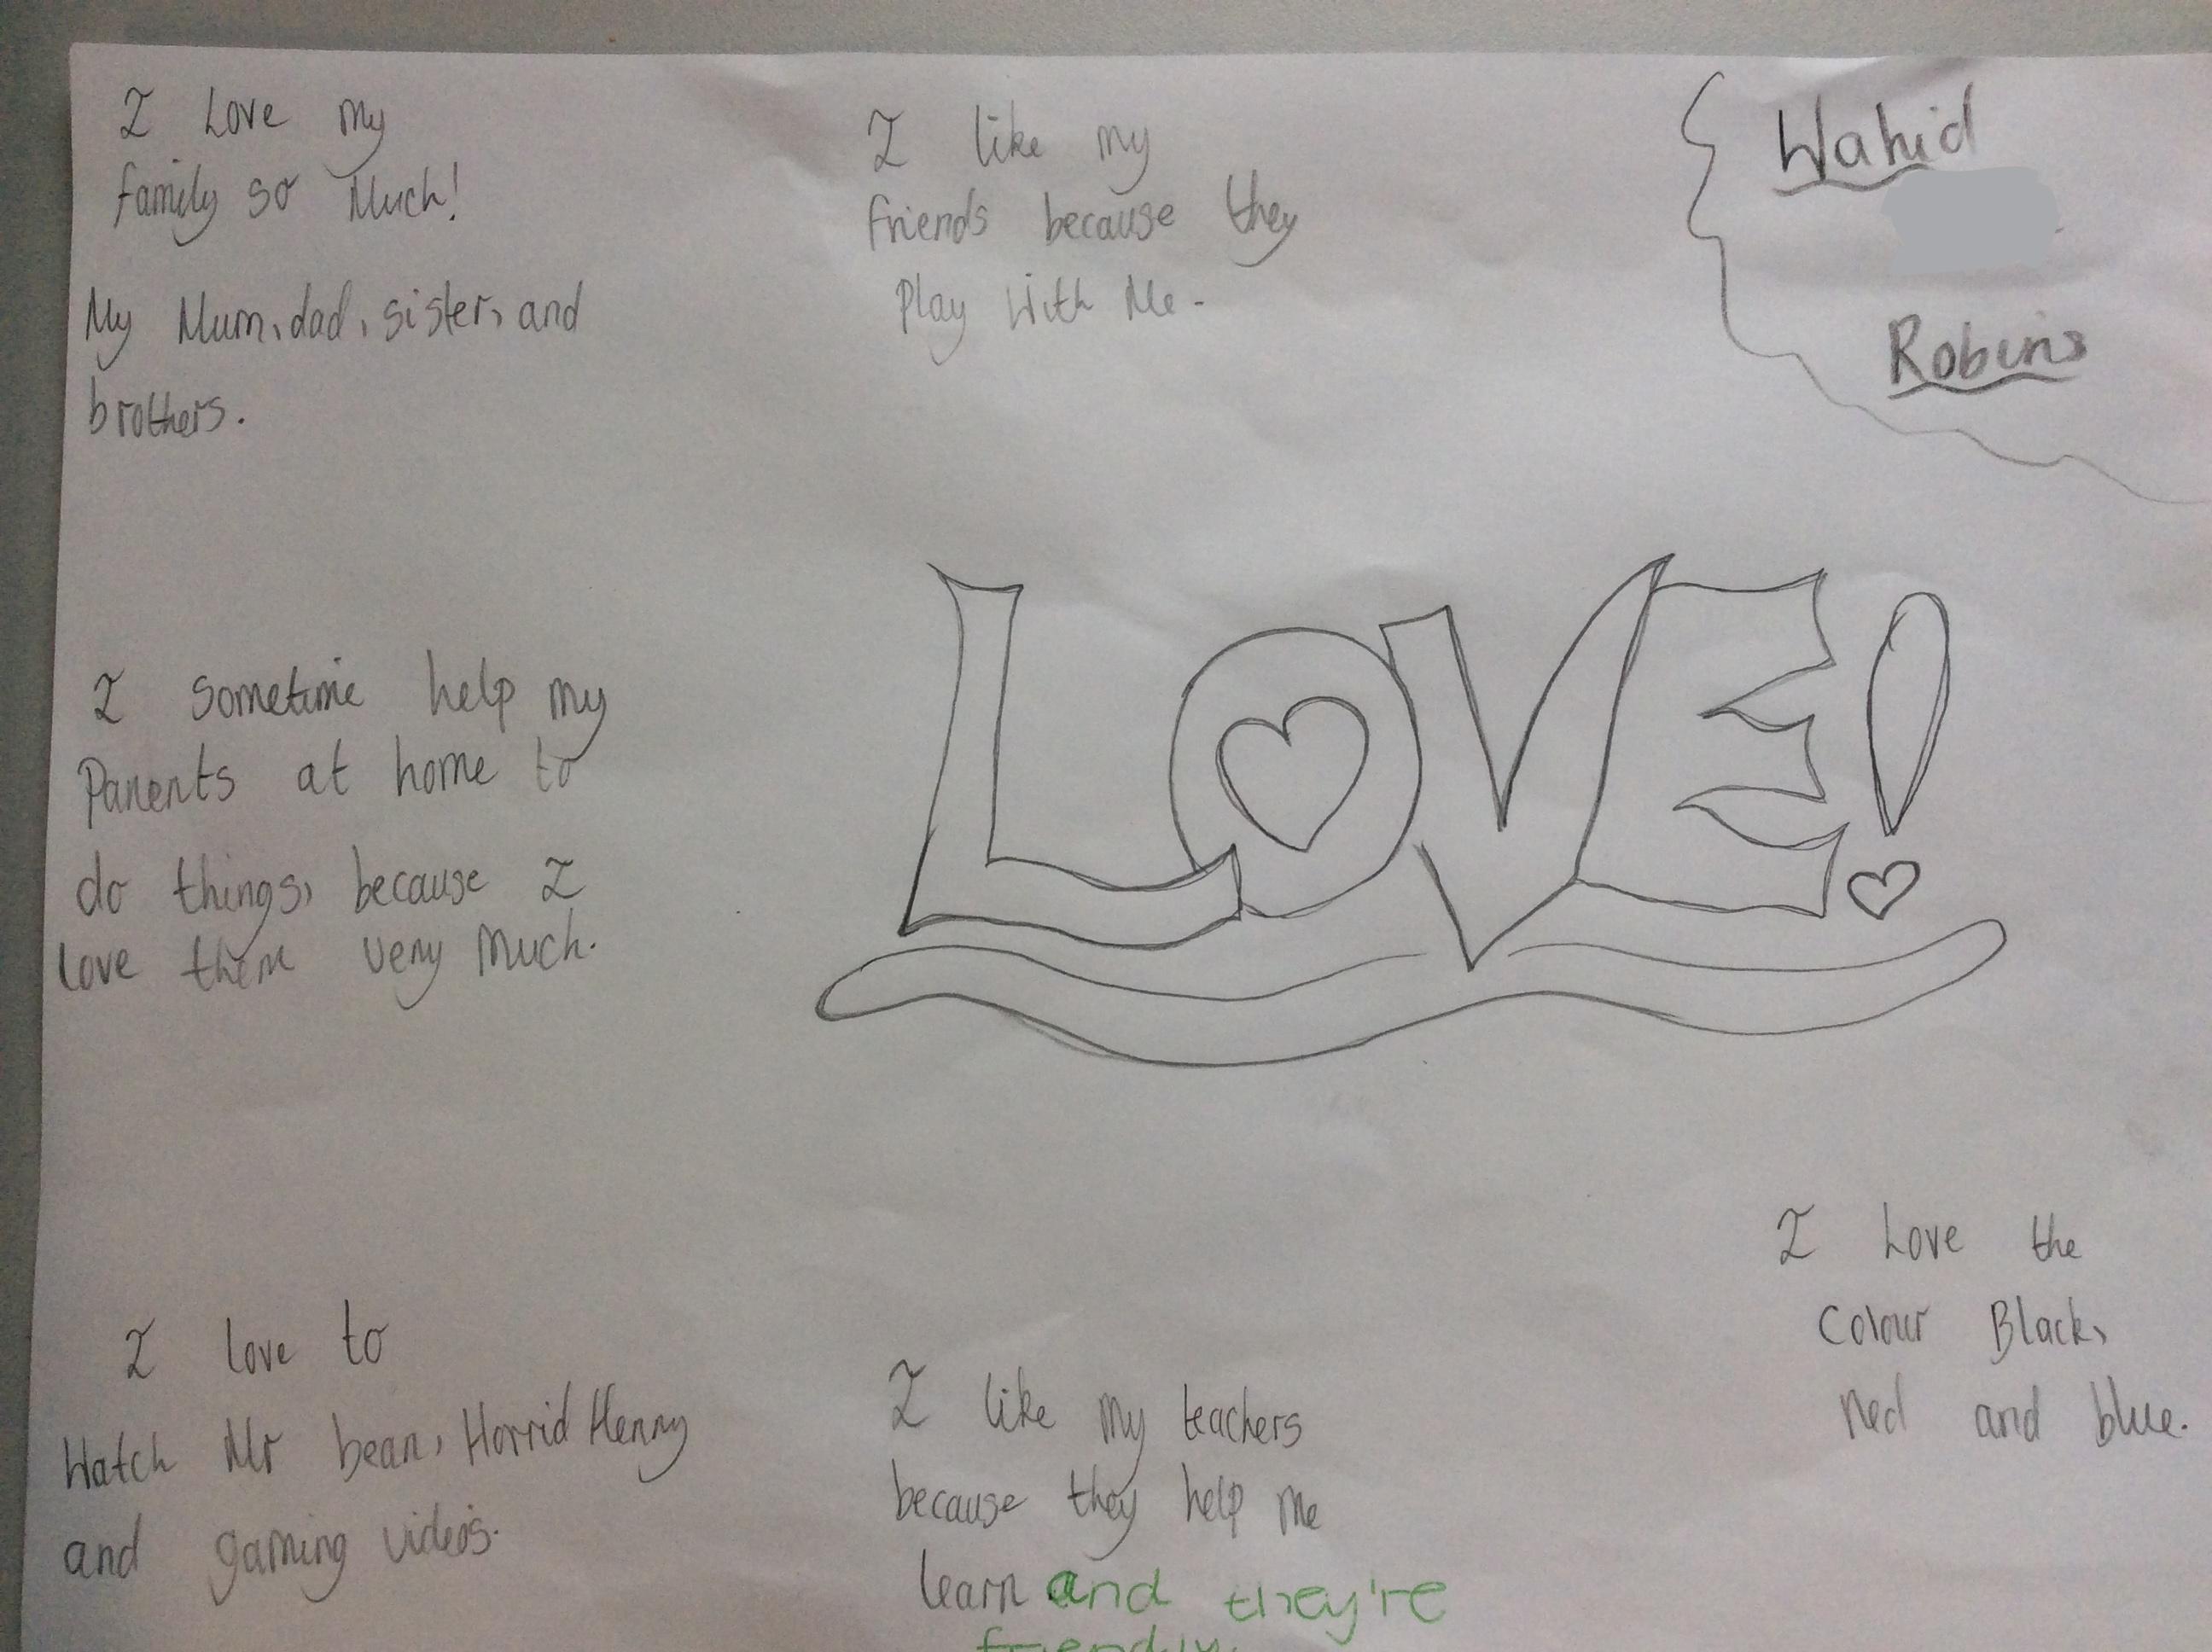 I Love my
family so Much!
My Mum, dad, sister, and
brothers.
I like my
friends because they
Play With Me.
Wahid
Robins
LOVE!
I sometime help my
Parents at home to
do things, because I
love them very Much.
I love to
Watch Mr bean, Horrid Henry
and gaming videos.
I like my teachers
because they help me
learn and they're
friendly.
I Love the
Colour Black,
red and blue.